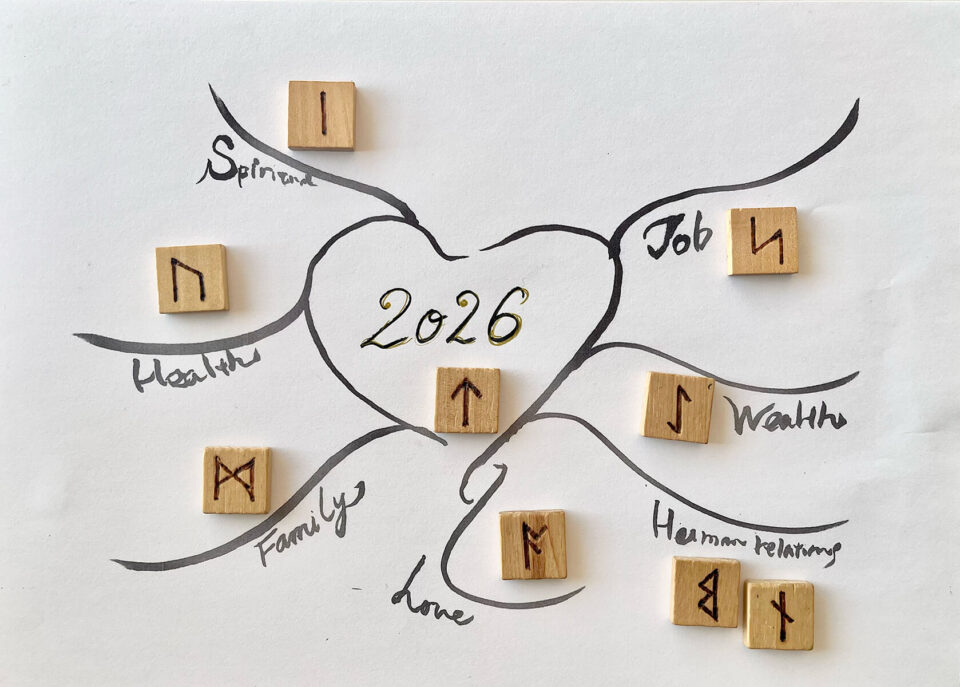 ᛁ
Job
ᛋ
ᚢ
2026
Health
ᛏ
ᛇ
Wealth
ᛗ
Family
Human relations
Love
ᛒ
ᚾ